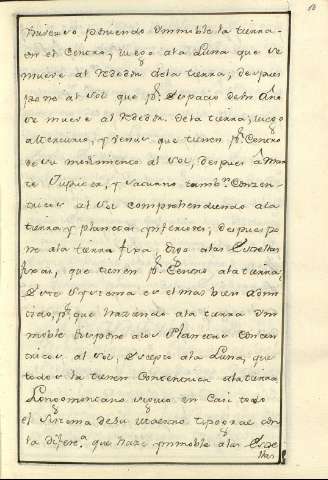 poniendo immoble la tierra
en el Centro, luego ala Luna que se
mueve al rededor dela tierra, despues
pone al Sol que pr. Espacio de un Año
se mueve al rededor. Dela tierra, luego
a Mercurio, y Venus que tienen pr. Centro
de su movimiento al Sol, despues a Mar
te Jupiter, y Saturno tambn. Concen
tricos al Sol comprehendiendo ala
tierra y planetas ynferiores, despues po
ne ala tierra fixa, digo alas Estrellas
fixas, que tienen pr. Centro ala tierra,
Este Systema es el mas bien admi
tido, pr. que haziendo ala tierra Im
moble supone alos Planetas Concen
tricos al Sol, Excepto ala Luna, que
todos la tienen Concentrica ala tierra
Longomontano siguio en Casi todo
el Sistema de su Maestro con
la diferena. que haze ymmoble alas Estre
llas